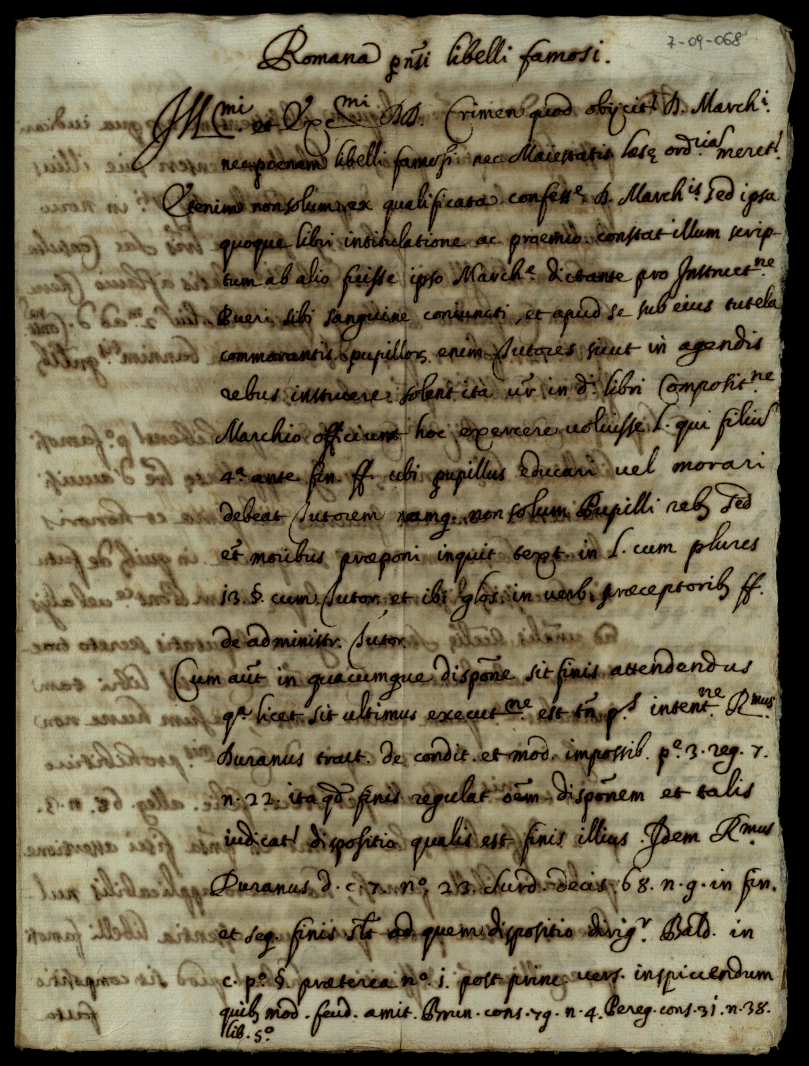 7-09-068
Romana pñsi libelli famosi.
Ill.mi et Exc.mi DD. Crimen quod obijcit.r D. March.i
nec poenam libelli famosi nec Maiestatis læsę ord.rias meret.r
Etenim non solum ex qualificata confess.e D. March.is sed ipsa
quoque libri intitulatione ac proemio constat illum scrip-
tum ab alio fuisse ipso March.e dictante pro Instruct.ne
Pueri sibi sanguine coniuncti, et apud se sub eius tutela
commorantis pupillor. enim Tutores sicut in agendis
rebus instruere solent ità vr. in d.i libri Composit.ne
Marchio officium hoc exercere uoluisse l. qui filius
4.a ante fin. ff. ubi pupillus educari uel morari
debeat Tutorem namq. non solum Pupilli reb. sed
et moribus præponi inquit text. in l. cum plures
13. §. cum Tutor et ibi glos. in uerb. præceptorib. ff.
de administr. Tutor.
Cum aut in quacumque dispõne sit finis attendendus
q.a licet sit ultimus execut.ne est tñ p.s intent.ne R.mus
Duranus tract. de condit. et mod. impossib. p.e 3. reg. 7.
n. 22. ita qd finis regulat oem dispõnem et talis
iudicat.r dispositio qualis est finis illius. Idem R.mus
Duranus d. c. 7. n.o 23. Surd. decis. 68. n. 9. in fin.
et seq. finis st ad quem dispositio dirig.r Bald. in
c. p.o §. præterea n.o 1. post princ. uers. inspiciendum
quib. mod. feud. amit. Brun. cons. 79. n. 4. Pereg. cons. 31. n. 38.
lib. 5.o